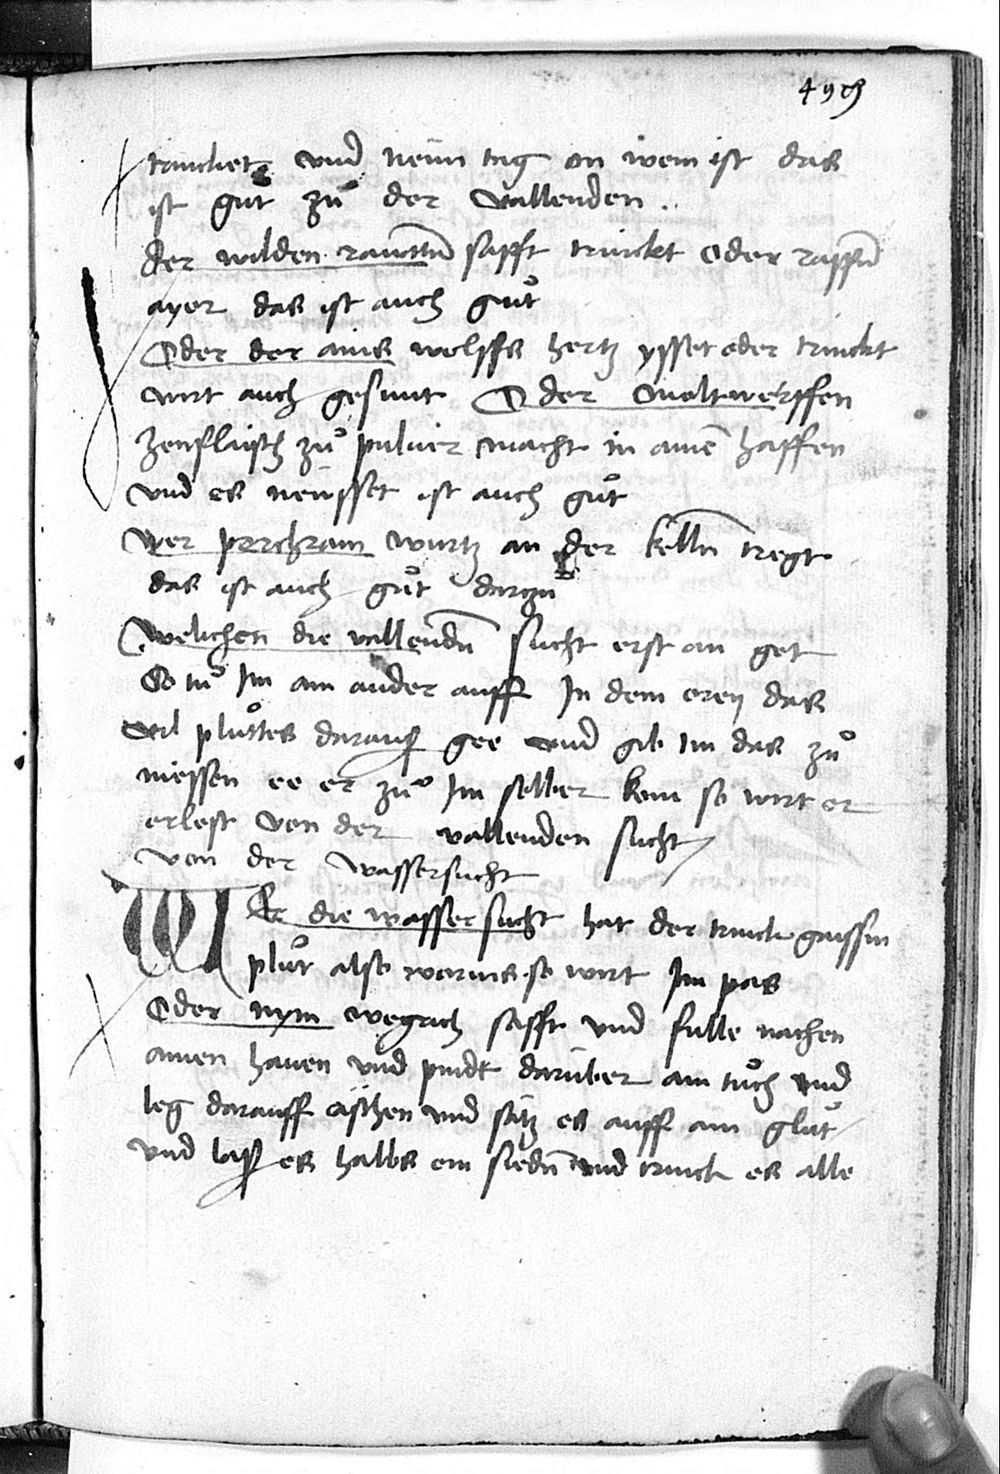 trincket und neün tag on wein ist das
ist gůt zů der Vallenden
der wilden rautten safft trinckt Oder rappen
ayer das ist auch gůt
Oder der ains wolffs hertz ysset oder trinckt
wirt auch gesunt Oder Moltwerffen
zenflaisch zů puluer macht in aine haffen
vnd es neüsset ist auch gůt
Wer perchram wurtz an der kelln tregt
das ist auch gůt darzů
Welichen die vallendn sucht erst an get
So tů Im ain ader auff In dem oren das
Vil plůttes darauß gee vnd gib im das zů
niessen ee er zů Im selber kom so wirt er
erlest Von der vallenden sucht
von der wassersucht
WEr die wassersucht hat der trinck gaissin
plůt also warms so wirt Im pas
Oder nym wegrich safft vnd fulle nachen
ainen hauen vnd pindt darüber ain tůch vnd
leg darauff äschen vnd sätz es auff ain glůt
vnd laß es halbs ein siedn vnd trinck es alle